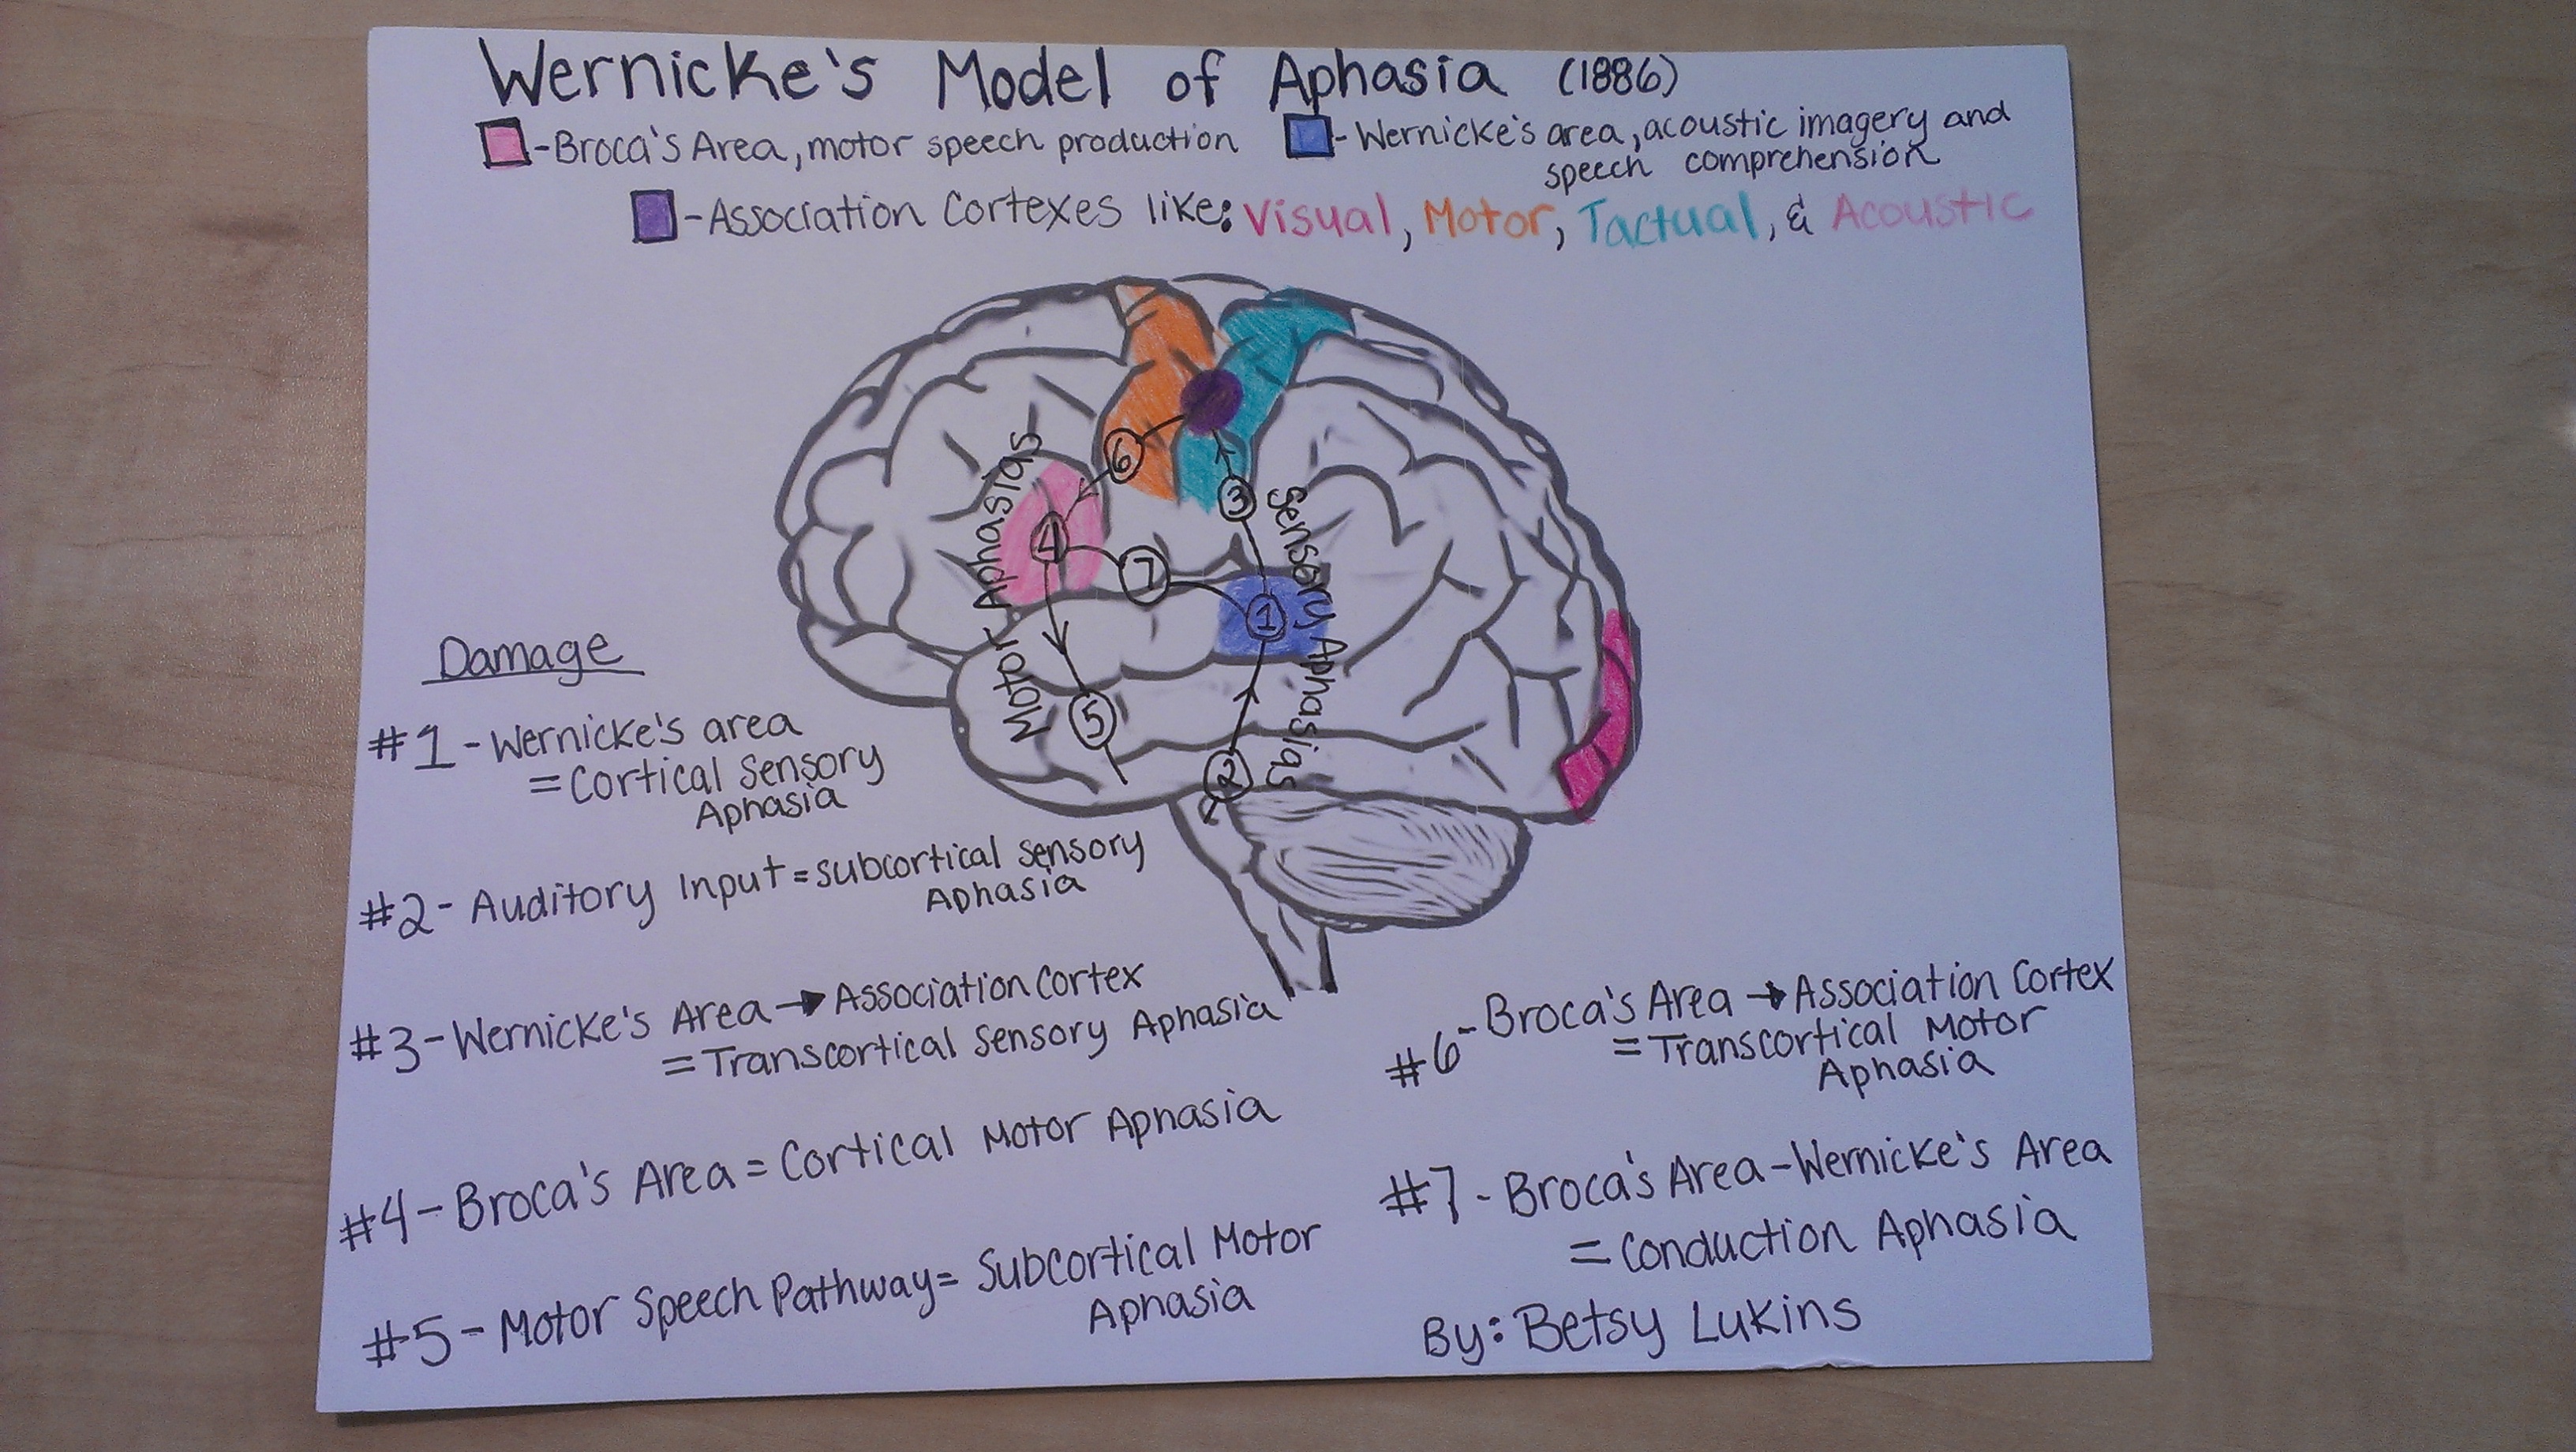 Wernicke's Model of Aphasia (1886)
-Broca's Area, motor speech production
-Wernicke's area, acoustic imagery and
speech comprehension
-Association Cortexes like: Visual, Motor, Tactual, & Acoustic
Motor Aphasias
Sensory Aphasias
6
3
4
7
1
5
2
Damage
#1-Wernicke's area
=Cortical Sensory
Aphasia
#2- Auditory Input=subcortical sensory
Aphasia
#3-Wernicke's Area→Association Cortex
=Transcortical Sensory Aphasia
#4-Broca's Area=Cortical Motor Aphasia
#5-Motor Speech Pathway= Subcortical Motor
Aphasia
#6-Broca's Area→Association Cortex
=Transcortical Motor
Aphasia
#7-Broca's Area-Wernicke's Area
=Conduction Aphasia
By: Betsy Lukins